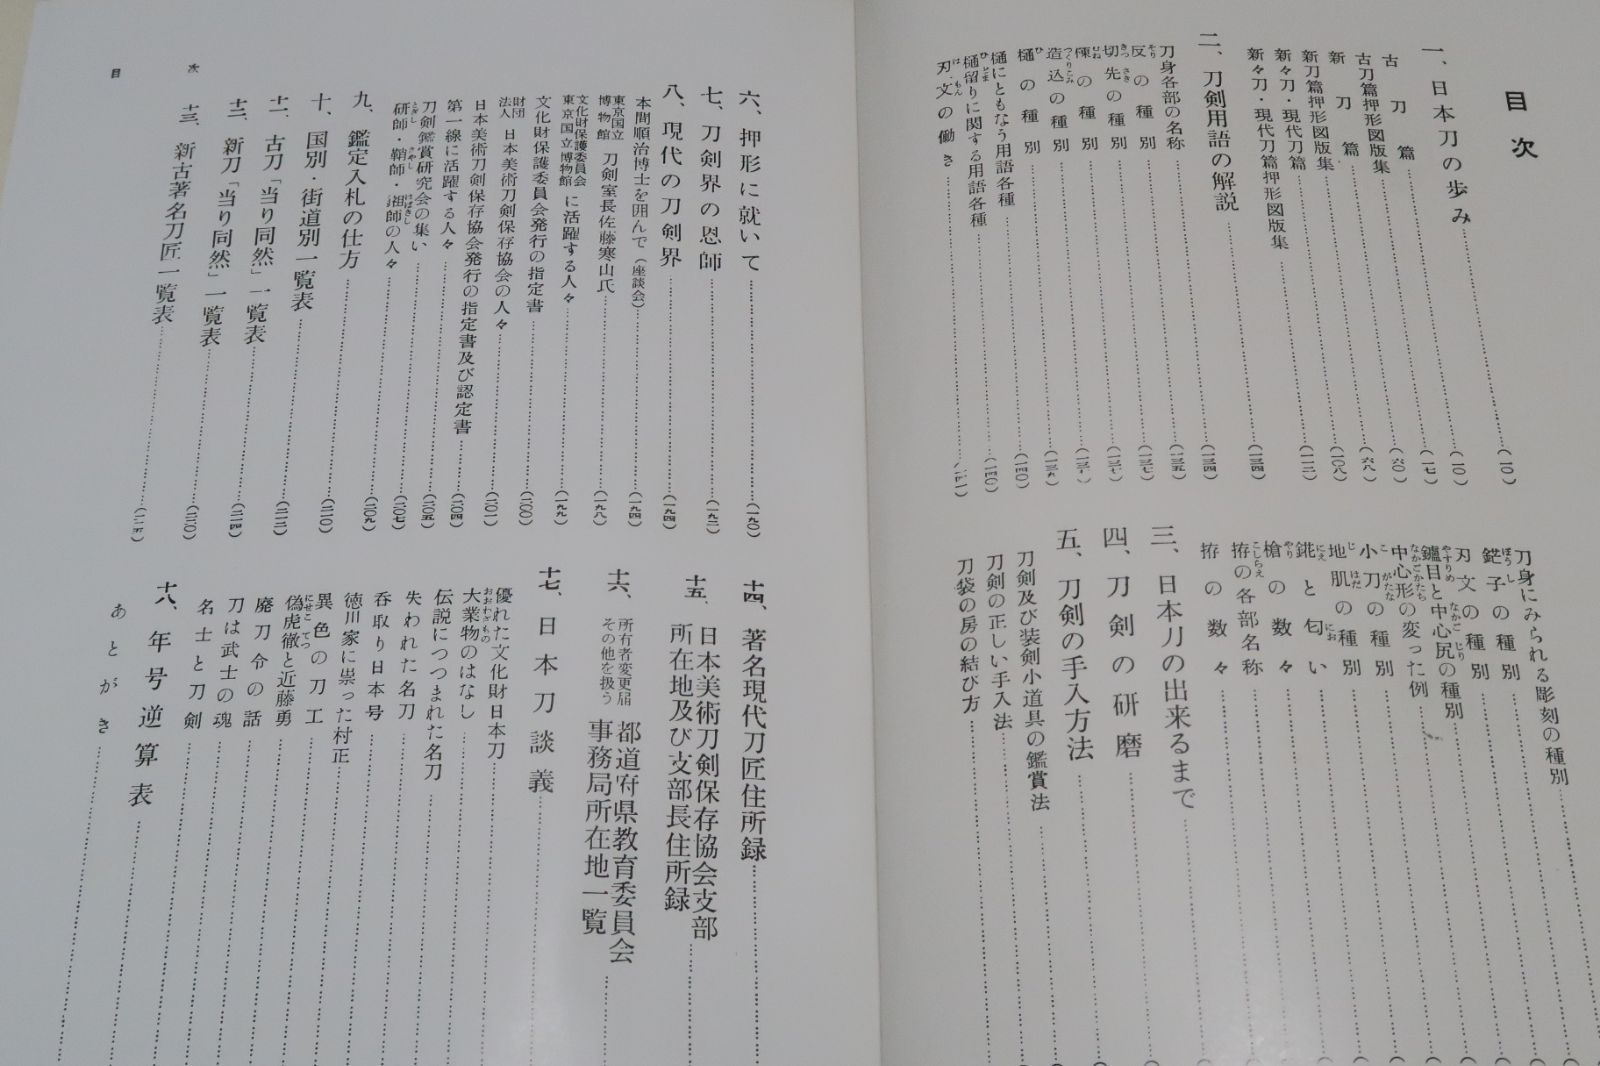 目次
一、日本刀の歩み……(一〇)
古刀篇……(一〇)
古刀篇押形図版集……(一七)
新刀篇……(六〇)
新刀篇押形図版集……(六八)
新々刀・現代刀篇……(一〇八)
新々刀・現代刀篇押形図版集……(一一二)
二、刀剣用語の解説……(一三四)
刀身各部の名称……(一三四)
反の種別……(一三五)
切先の種別……(一三七)
棟の種別……(一三七)
造込の種別
樋の種別……(一三九)
樋にともなう用語各種……(一四〇)
樋留りに関する用語各種……(一四〇)
刃文の働き
刀身にみられる彫刻の種別
鋩子の種別
刃文の種別
鑢目と中心尻の種別
中心形の変った例
小刀の種別
地肌の種別
錵と匂い
槍の数々
拵の各部名称
拵の数々
三、日本刀の出来るまで
四、刀剣の研磨
五、刀剣の手入方法
刀剣及び装剣小道具の鑑賞法
刀剣の正しい手入法
刀袋の房の結び方
六、押形に就いて……(一九〇)
七、刀剣界の恩師……(一九二)
八、現代の刀剣界……(一九四)
本間順治博士を囲んで(座談会)……(一九四)
東京国立博物館 刀剣室長佐藤寒山氏……(一九八)
文化財保護委員会 東京国立博物館 に活躍する人々……(一九九)
文化財保護委員会発行の指定書……(二〇〇)
財団法人 日本美術刀剣保存協会の人々……(二〇一)
日本美術刀剣保存協会発行の指定書及び認定書……(二〇四)
第一線に活躍する人々
刀剣鑑賞研究会の集い……(二〇五)
研師・鞘師・祖師の人々……(二〇七)
九、鑑定入札の仕方……(二〇九)
十、国別・街道別一覧表……(二一〇)
十一、古刀「当り同然」一覧表……(二一二)
十二、新刀「当り同然」一覧表……(二一四)
十三、新古著名刀匠一覧表
十四、著名現代刀匠住所録
十五、日本美術刀剣保存協会支部
所在地及び支部長住所録
十六、所有者変更届その他を扱う 都道府県教育委員会
事務局所在地一覧
十七、日本刀談義
優れた文化財日本刀
大業物のはなし
伝説につつまれた名刀
失われた名刀
呑取り日本号
徳川家に祟った村正
異色の刀工
偽虎徹と近藤勇
廃刀令の話
刀は武士の魂
名士と刀剣
十八、年号逆算表
あとがき
目次